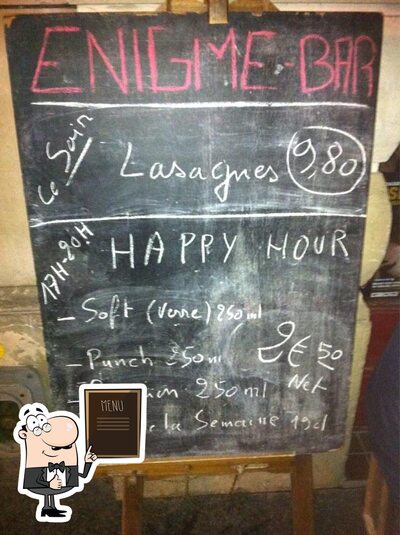 ENIGME-BAR
Ce Soir
Lasagnes 9,80
17H-20H
HAPPY HOUR
- Soft (Verre) 250ml
2€50
Net
- Punch 250ml
250ml
la Semaine 19cl
MENU